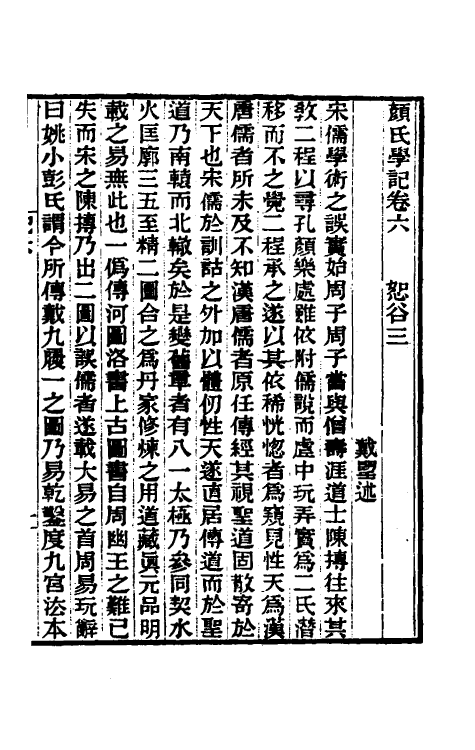 顏氏學記卷六　恕谷三
戴望述
宋儒學術之誤實始周子周子嘗與僧壽涯道士陳摶往來其
敎二程以尋孔顏樂處雖依附儒說而虛中玩弄實爲二氏潛
移而不之覺二程承之遂以其依稀恍惚者爲窺見性天爲漢
唐儒者所未及不知漢唐儒者原任傳經其視聖道固散寄於
天下也宋儒於訓詁之外加以體仞性天遂直居傳道而於聖
道乃南轅而北轍矣於是變舊章者有八一太極乃參同契水
火匡廓三五至精二圖合之爲丹家修煉之用道藏眞元品明
載之易無此也一僞傳河圖洛書上古圖書自周幽王之難已
失而宋之陳摶乃出二圖以誤儒者遂載大易之首周易玩辭
曰姚小彭氏謂今所傳戴九履一之圖乃易乾鑿度九宮法本